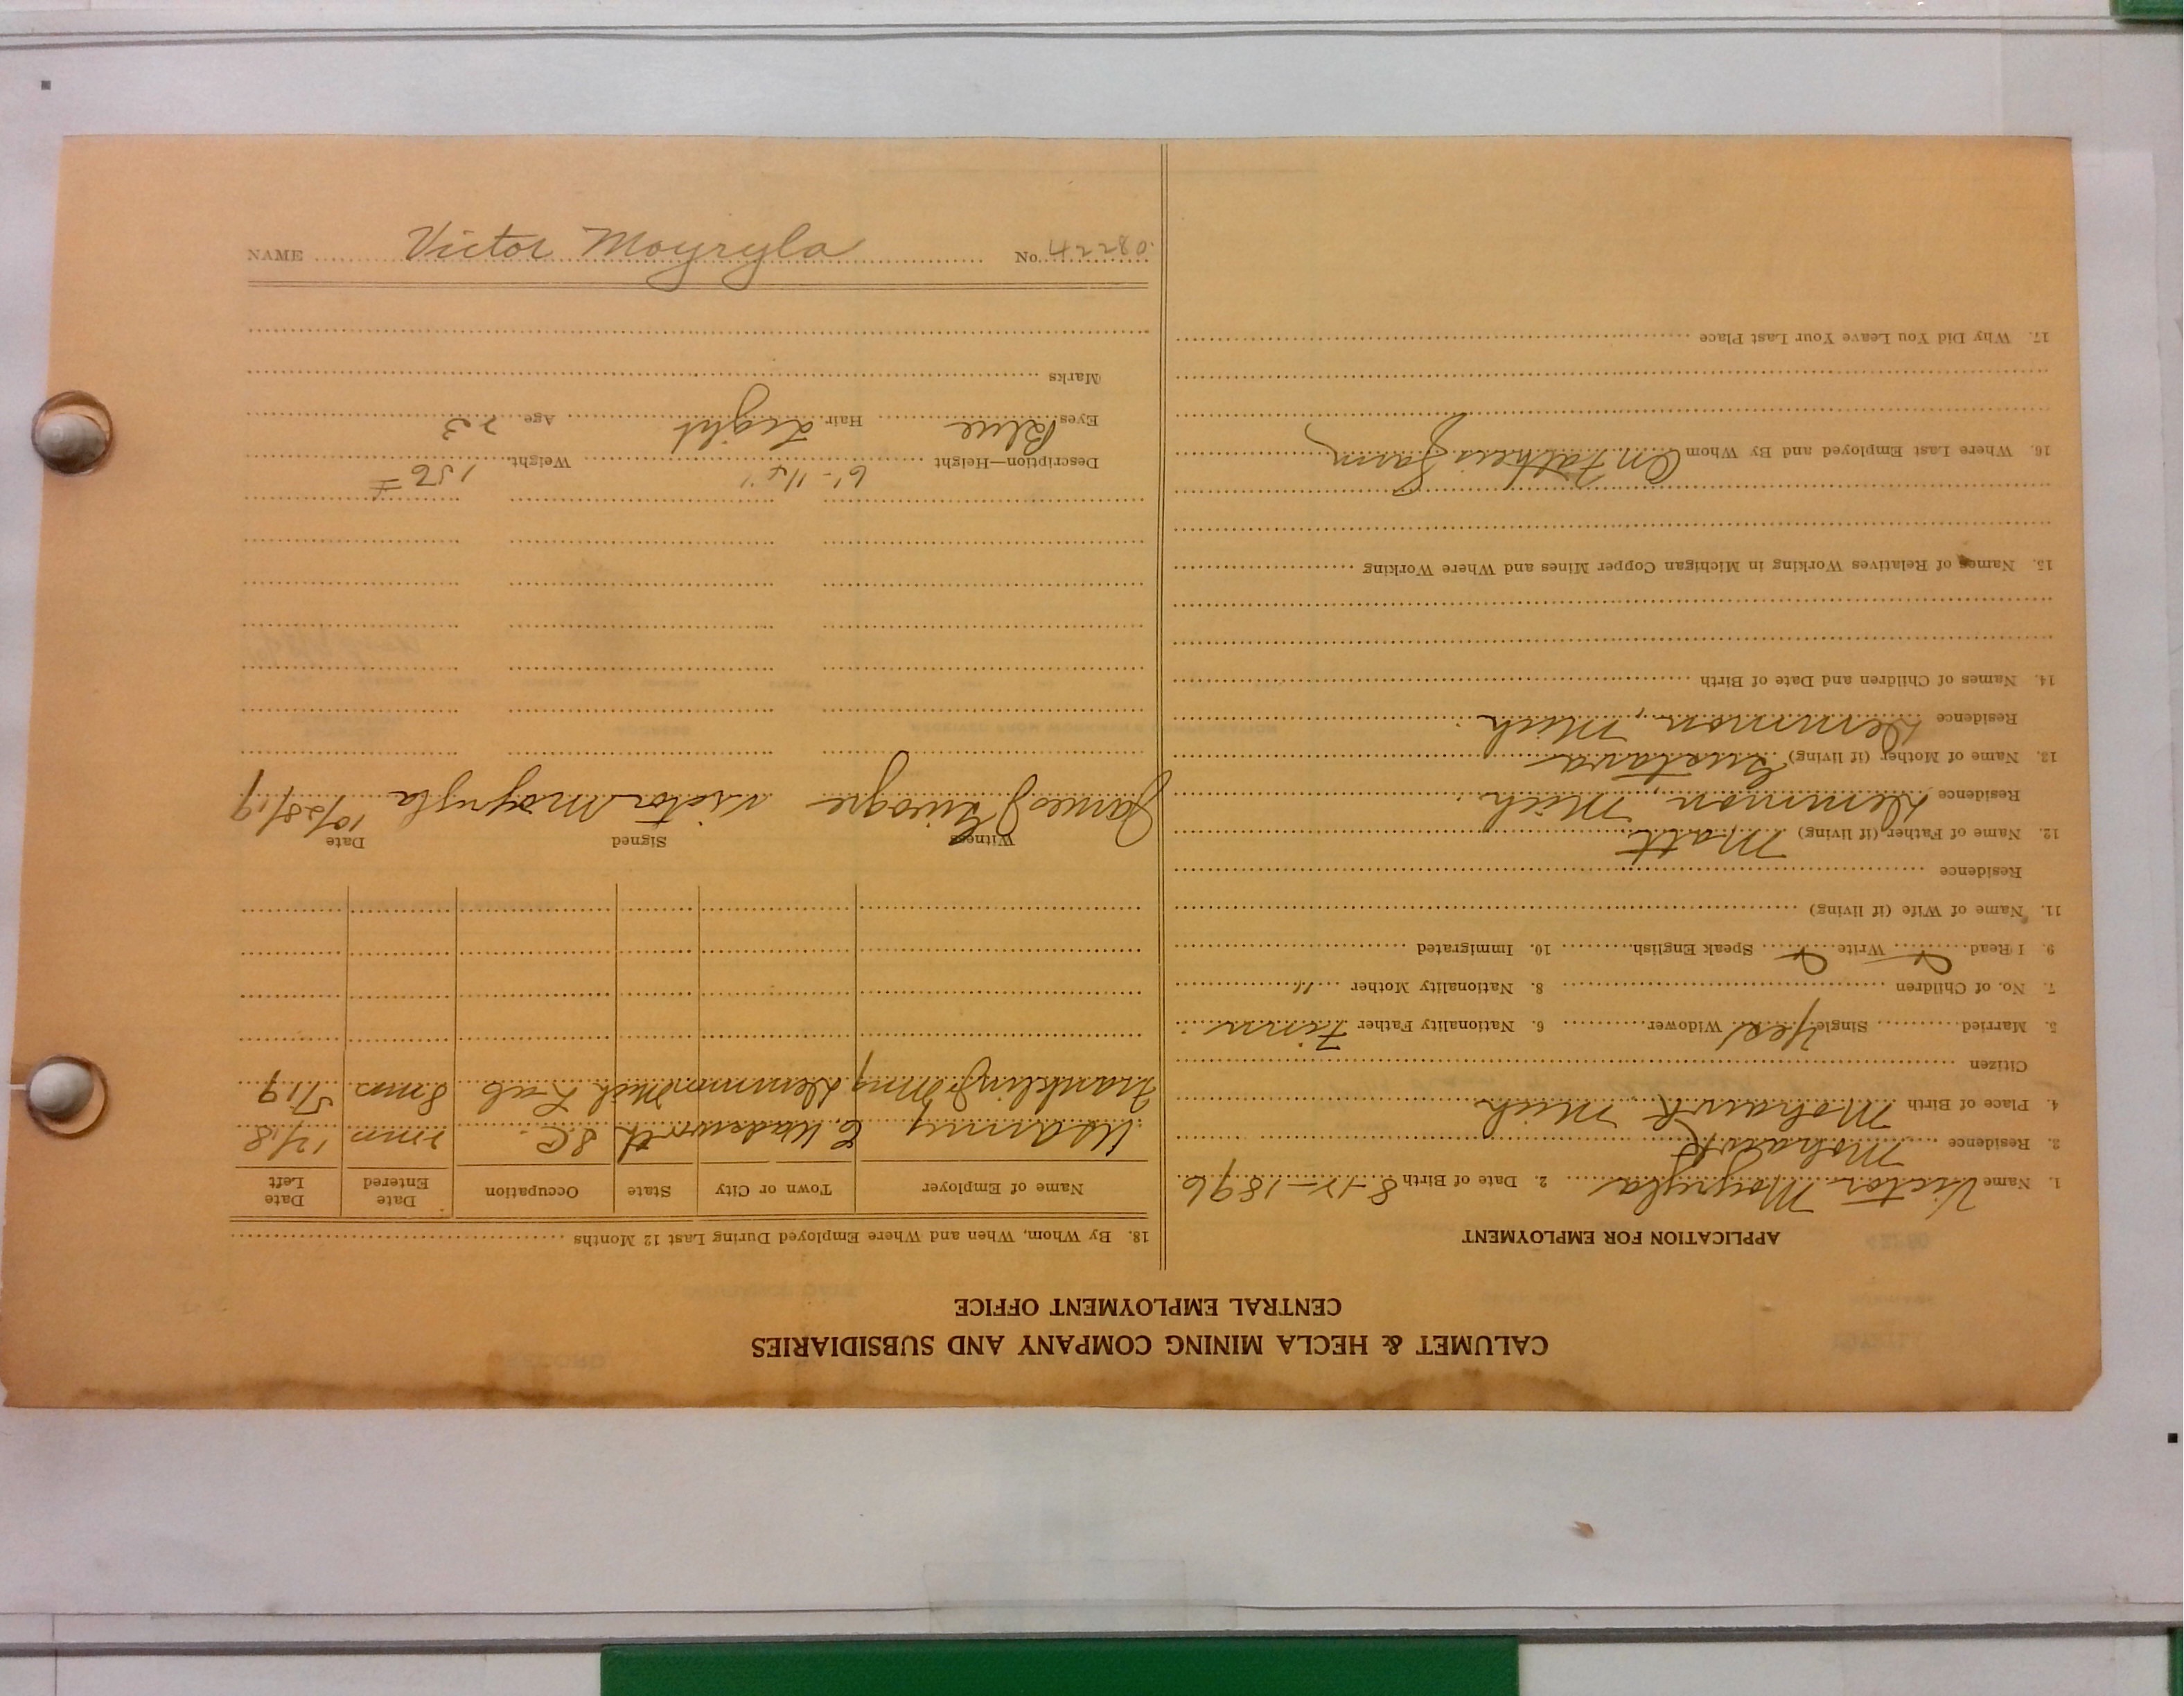 CALUMET & HECLA MINING COMPANY AND SUBSIDIARIES
CENTRAL EMPLOYMENT OFFICE
APPLICATION FOR EMPLOYMENT
1. Name Victor Moyryla 2. Date of Birth 8-12-1896
2. Residence Mohawk
4. Place of Birth Mohawk Mich
Citizen
5. Married Single Yes Widower 6. Nationality Father Finn
7. No. of Children 8. Nationality Mother "
9. I Read Write Speak English 10. Immigrated
11. Name of Wife (if living)
Residence
12. Name of Father (if living) Matt
Residence Demmon, Mich.
13. Name of Mother (if living) Gustava
Residence Demmon, Mich.
14. Names of Children and Date of Birth
15. Names of Relatives Working in Michigan Copper Mines and Where Working
16. Where Last Employed and By Whom On Fathers Farm
17. Why Did You Leave Your Last Place
18. By Whom, When and Where Employed During Last 12 Months
Name of Employer Town or City State Occupation Date Entered Date Left
US Army C. Wadsworth S.C. 2 mo 12/18
Franklin Mng Demmon Mich Lab 8 mos 5/19
Witness Signed Date
James Victor Moyryla 10/28/19
Description—Height 6'-1 1/4" Weight 156 #
Eyes Blue Hair Light Age 23
Marks
NAME Victor Moyryla No. 42280